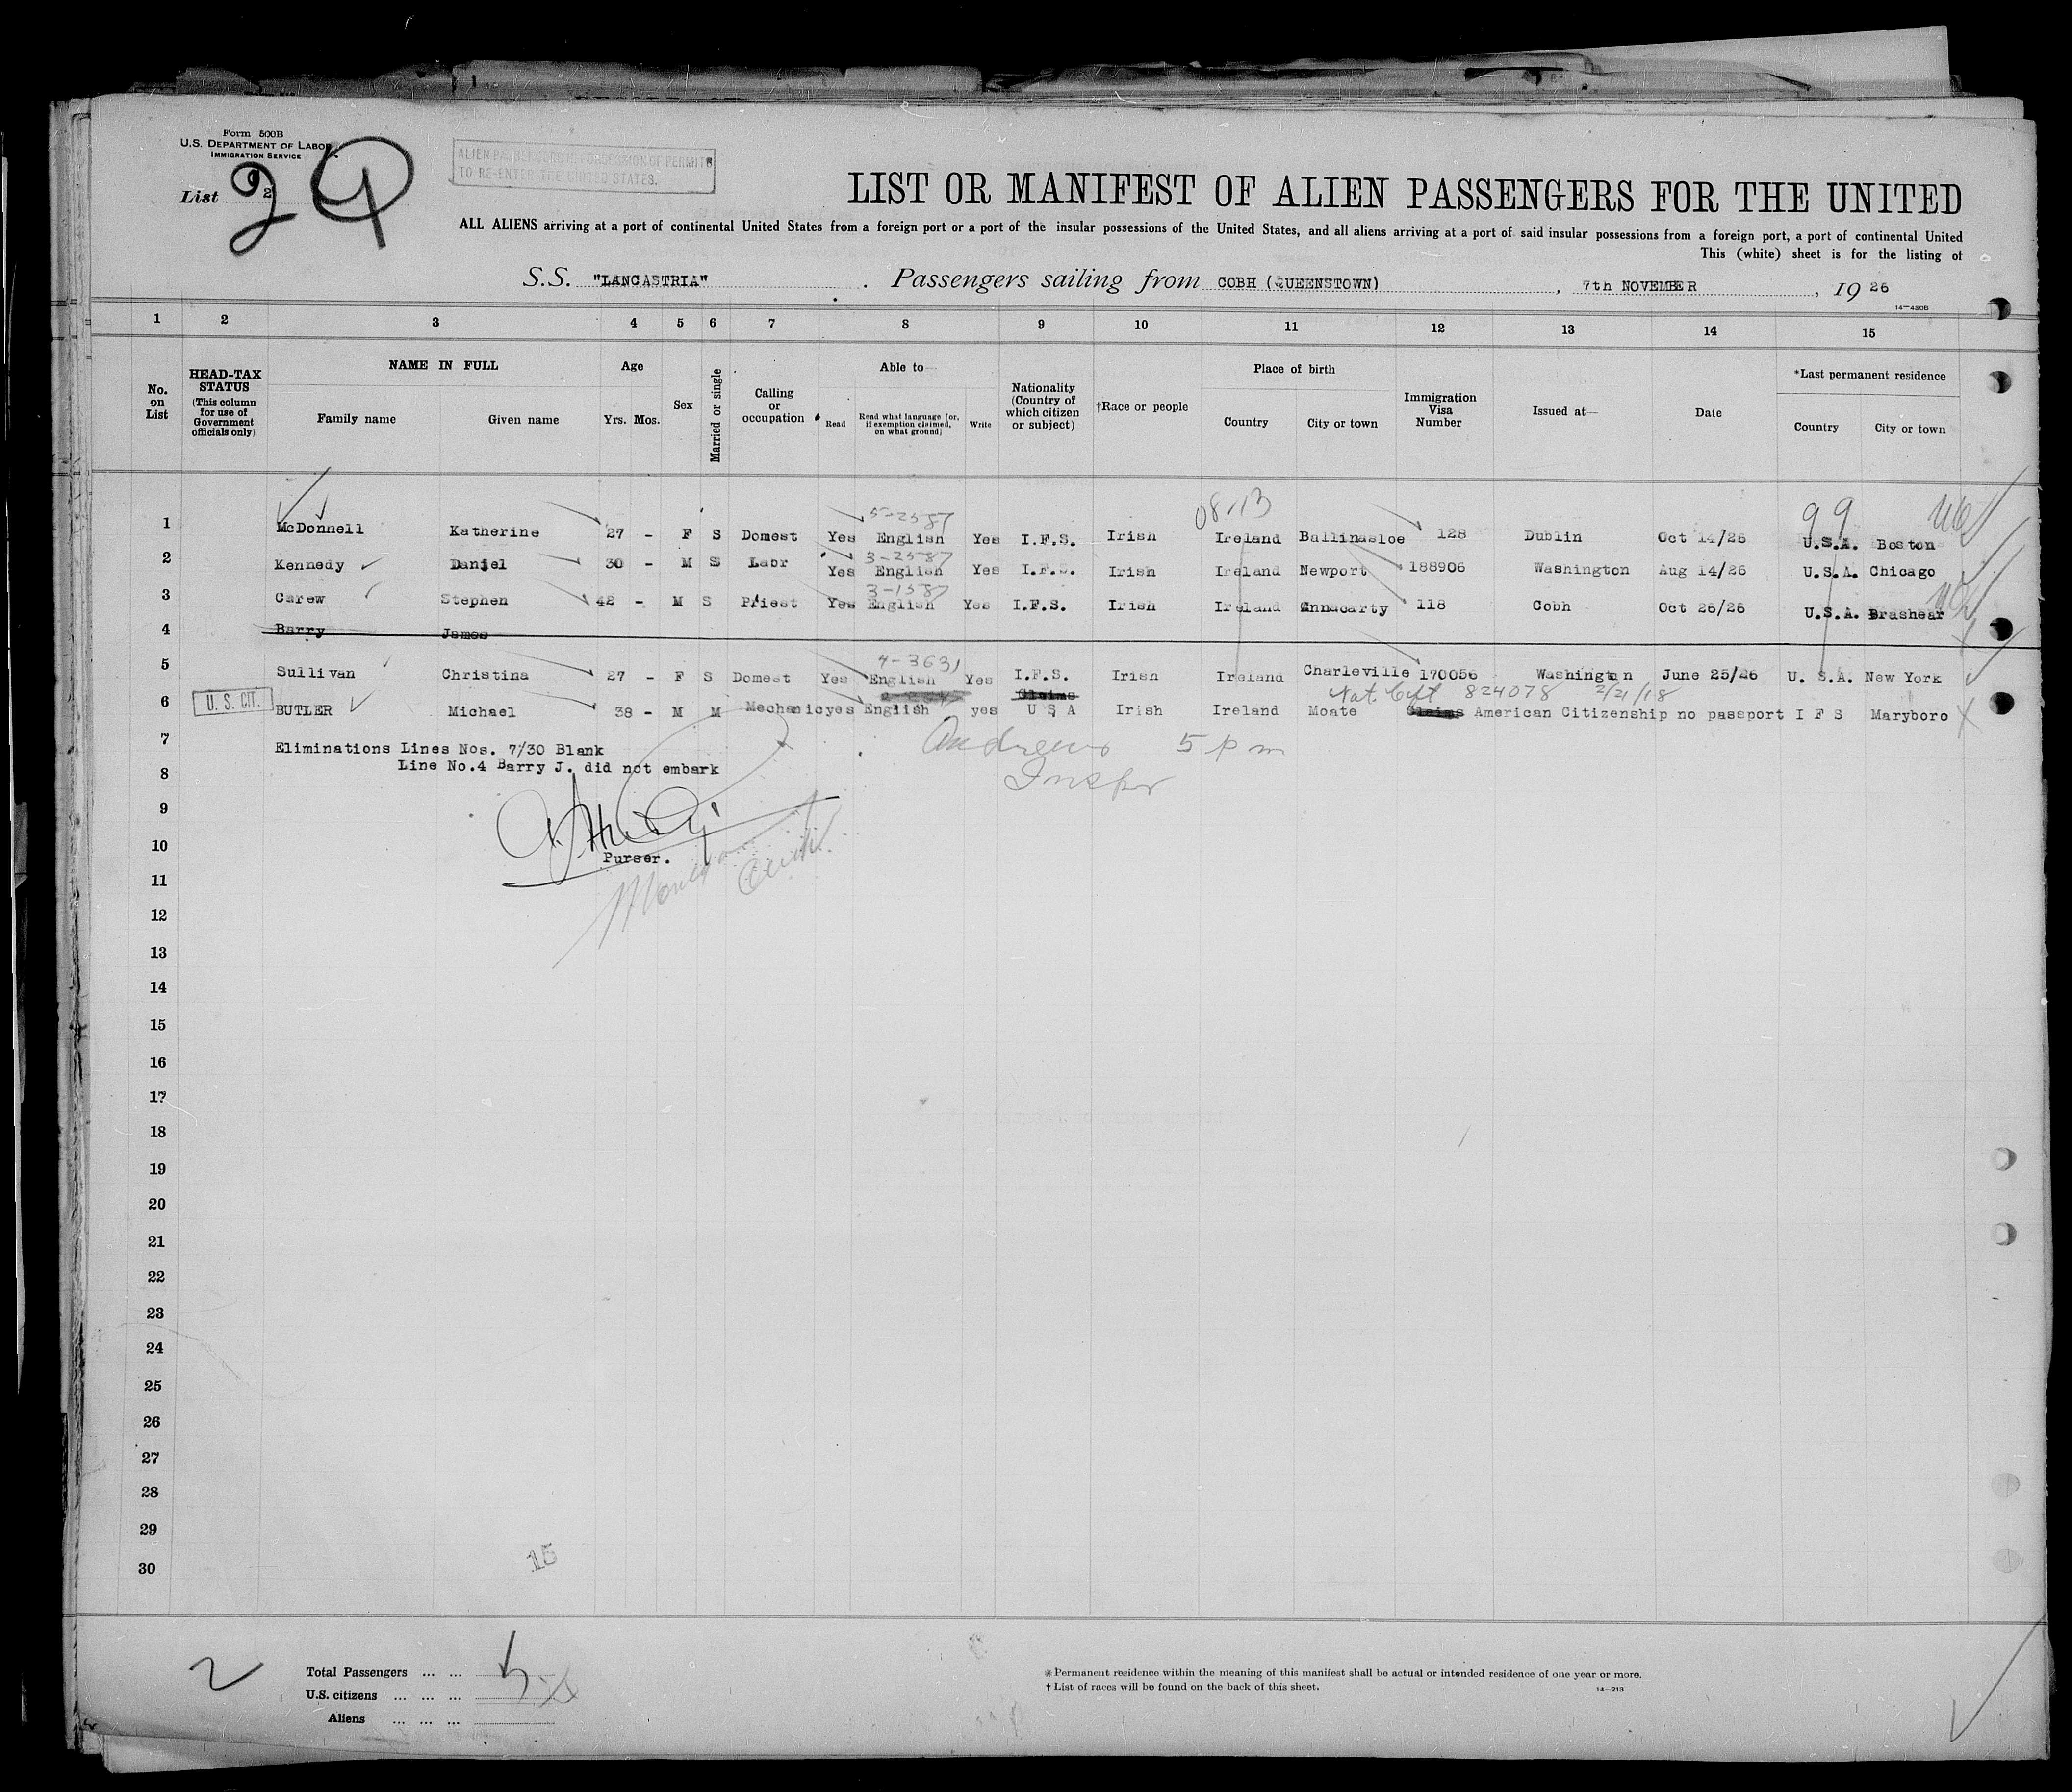 Form 500B
U.S. DEPARTMENT OF LABOR
IMMIGRATION SERVICE
List 2
9
ALIEN PASSENGERS IN POSSESSION OF PERMITS
TO RE-ENTER THE UNITED STATES.
LIST OR MANIFEST OF ALIEN PASSENGERS FOR THE UNITED
ALL ALIENS arriving at a port of continental United States from a foreign port or a port of the insular possessions of the United States, and all aliens arriving at a port of said insular possessions from a foreign port, a port of continental United
This (white) sheet is for the listing of
S.S. "LANCASTRIA" . Passengers sailing from COBH (QUEENSTOWN) , 7th NOVEMBER , 19 26
14—430B
1 2 3 4 5 6 7 8 9 10 11 12 13 14 15
No. on List
HEAD-TAX STATUS (This column for use of Government officials only)
NAME IN FULL
Family name Given name
Age
Yrs. Mos.
Sex
Married or single
Calling or occupation
Able to—
Read
Read what language [or, if exemption claimed, on what ground]
Write
Nationality (Country of which citizen or subject)
†Race or people
Place of birth
Country City or town
Immigration Visa Number
Issued at—
Date
*Last permanent residence
Country City or town
5-2587 08/13 99
1 McDonnell Katherine 27 - F S Domest Yes English Yes I.F.S. Irish Ireland Ballinasloe 128 Dublin Oct 14/26 U.S.A. Boston
3-2587
2 Kennedy Daniel 30 - M S Labr Yes English Yes I.F.S. Irish Ireland Newport 188906 Washington Aug 14/26 U.S.A. Chicago
3-1587
3 Carew Stephen 42 - M S Priest Yes English Yes I.F.S. Irish Ireland Annacarty 118 Cobh Oct 26/26 U.S.A. Brashear
4 Barry James
4-3631
5 Sullivan Christina 27 - F S Domest Yes English Yes I.F.S. Irish Ireland Charleville 170056 Washington June 25/26 U. S.A. New York
Claims Nat. Cift 824078 2/21/18
6 U. S. CIT. BUTLER Michael 38 - M M Mechanic yes English yes U S A Irish Ireland Moate Claims American Citizenship no passport I F S Maryboro
7 Eliminations Lines Nos. 7/30 Blank
Andrews 5 p m
8 Line No.4 Barry J. did not embark
Inspr
9
10 Purser.
11
12
13
14
15
16
17
18
19
20
21
22
23
24
25
26
27
28
29
15
30
2
Total Passengers ... ...
U.S. citizens ... ... ...
Aliens ... ... ...
* Permanent residence within the meaning of this manifest shall be actual or intended residence of one year or more.
† List of races will be found on the back of this sheet.
14—213